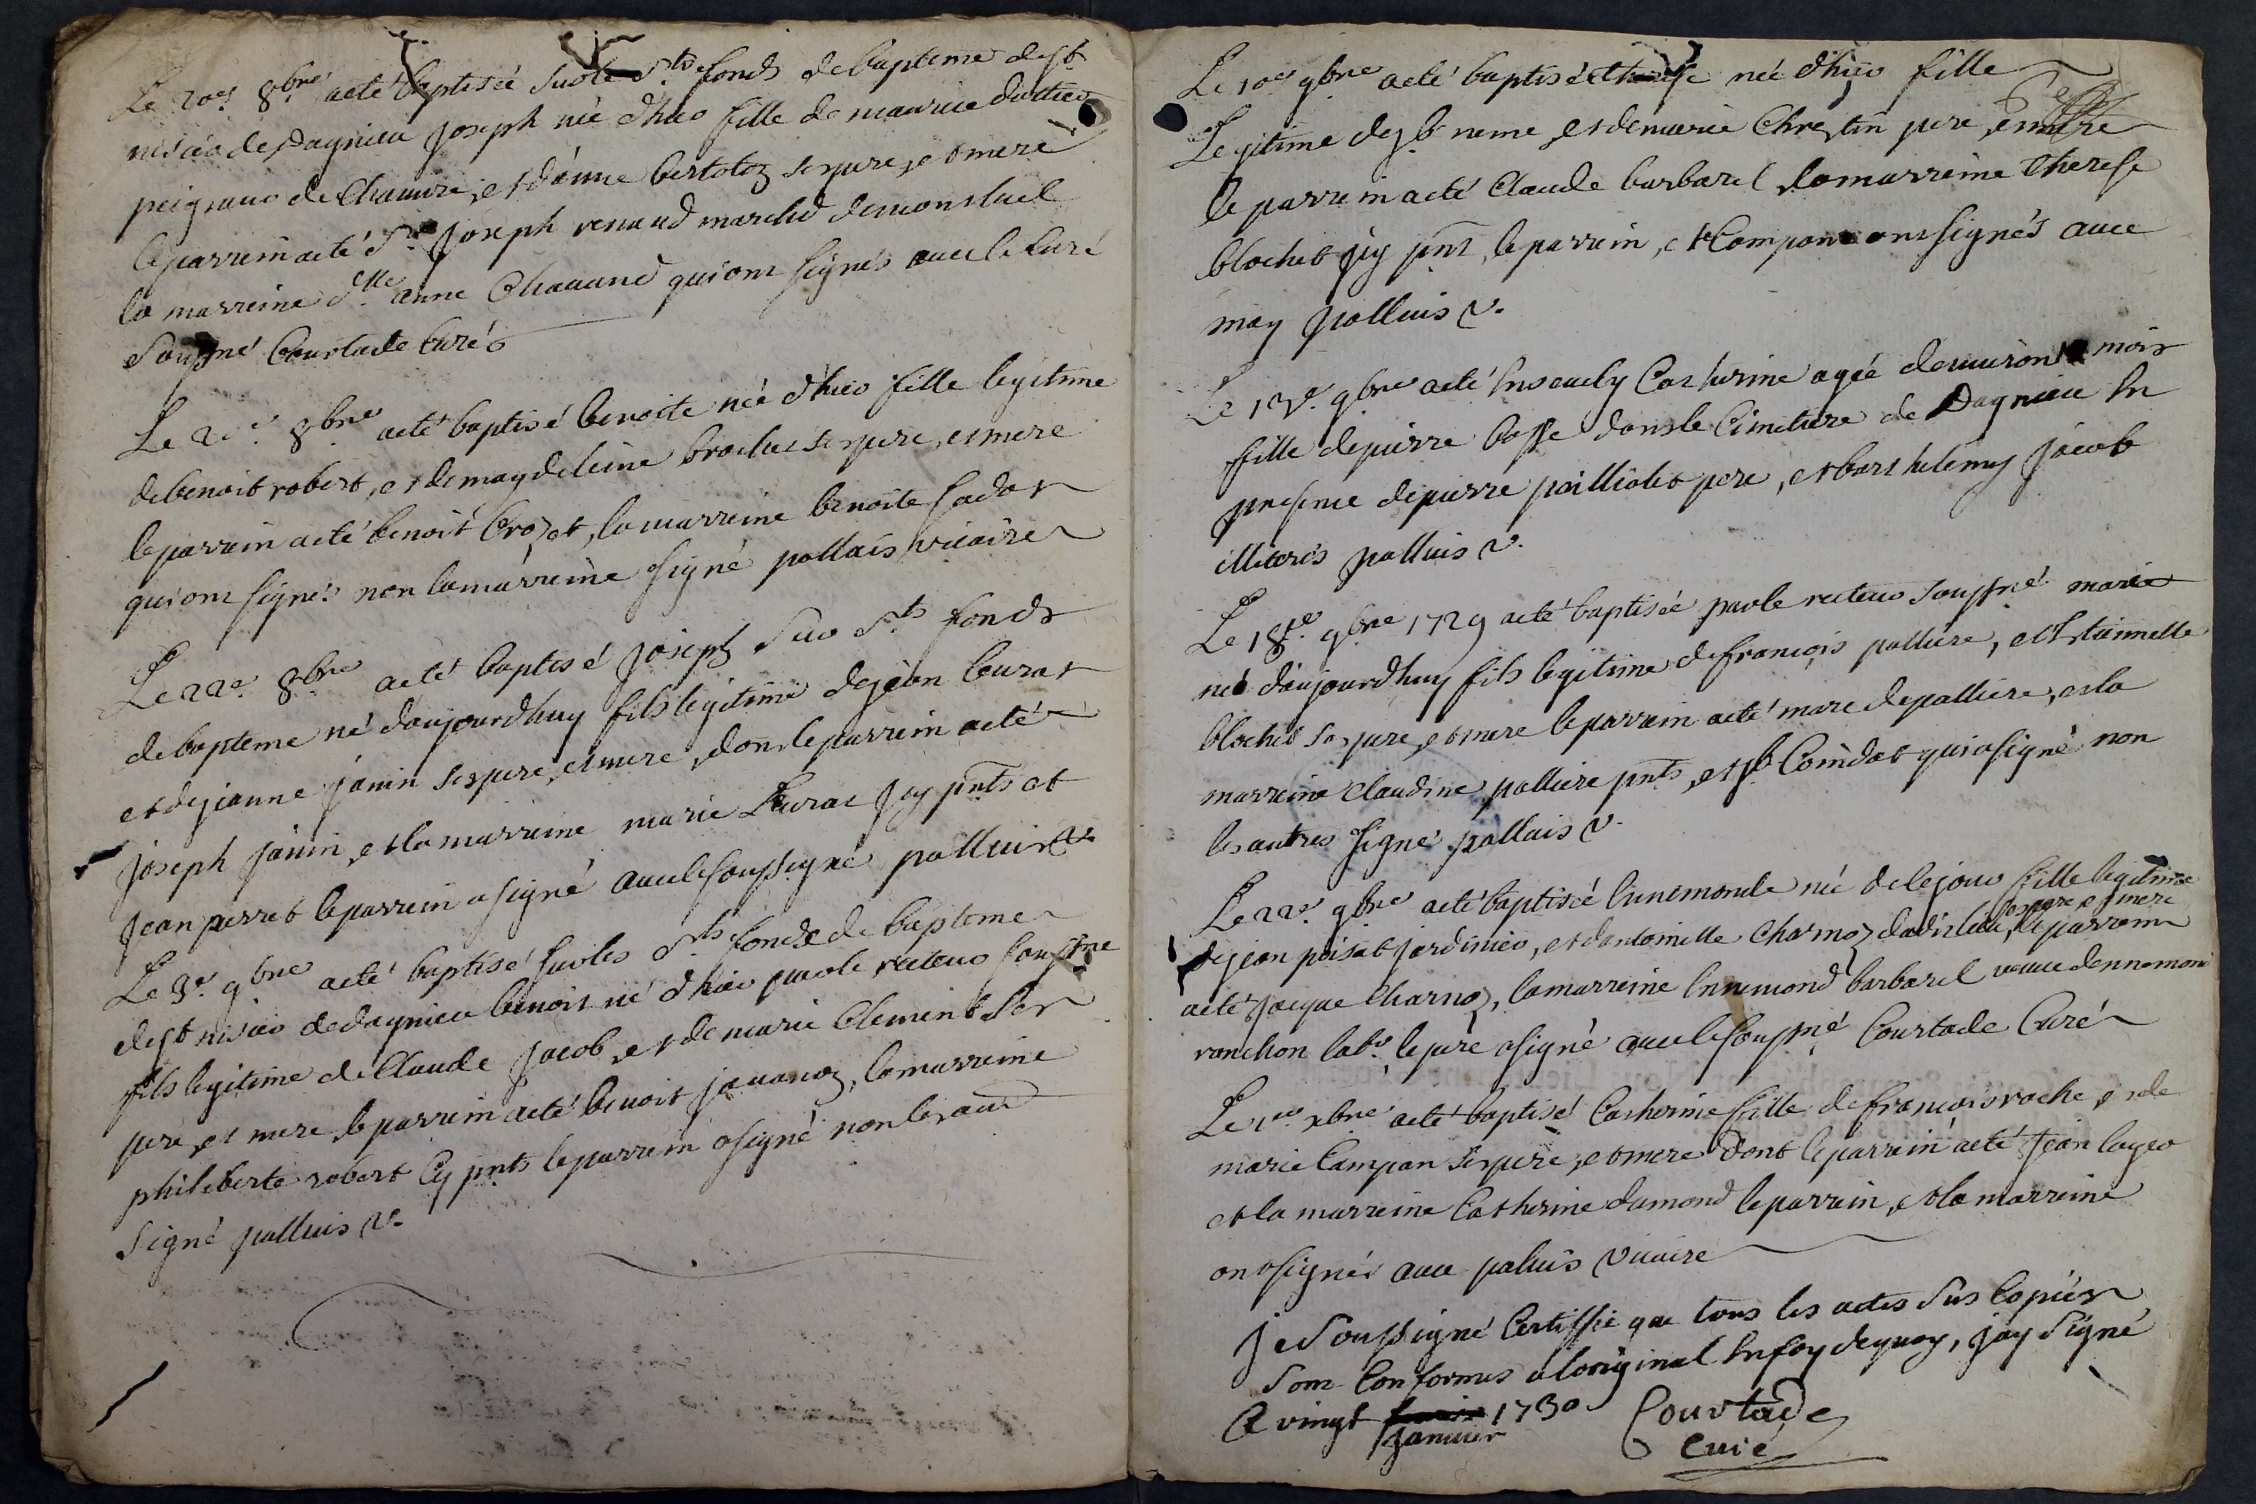 Le 20e 8bre aeté baptisée sus le Sts fonds de bapteme de st
nisier de Dagnieu joseph née d'hier fille de maurice
peigneur de Chanvre, et d'anne bertoloz ses pere, et mere
le parrein aeté Sr. joseph renaud marchd de monluel
la marreine dlle anne Chavand qui ont signés avec le Curé
sousgné Courtade Curé
Le 21e. 8bre aeté baptisé benoite née d'hier fille legitime
de benoit robert, et de magdeleine brochet ses pere, et mere
le parrain aeté benoit Crozet, la marreine benoite Cadot
qui ont signés non la marreine signé palluis vicaire
Le 22e. 8bre aeté baptisé joseph sur Sts fonds
de bapteme né d'aujourdhuy fils legitime de jean leurat
et de jeanne janin ses pere, et mere, dont le parrein aeté
joseph janin, et la marreine marie Leurat jcy pnts et
jean perret le parrein a signé avec le soussigné palluis v.
Le 3e. 9bre aeté baptisé sur les Sts fonds de bapteme
de st nisier de dagnieu benoit né d'hier par le recteur sousgné
fils legitime de Claude jacob, et de marie Clement ses
pere, et mere, le parrein aeté benoit javanoz, la marreine
philiberte robert Cy pnts le parrein a signé non les aut
signé palluis v.
Le 10e 9bre aeté baptisée therese née d'hier fille
Legitime de jb neme, et de marie Chrestin pere, et mere
le parrein aeté Claude barbarel, la marreine therese
blochet jcy pnts, le parrein, et Compan ont signés avec
moy palluis v.
Le 13e. 9bre aeté Ensevely Catherine agée d'environ mois
fille de pierre basse dans le Cimetiere de Dagnieu En
presence de pierre paillialet pere, et barthelemy jacob
illiterés palluis v.
Le 18e. 9bre 1729 aeté baptisée par le recteur sousgné marie
né d'aujourdhuy fils legitime de françois palliere, et Etiennette
blochet ses pere, et mere le parrain aeté marc de palliere, et la
marreine Claudine palliere pnts, et jb Coindat qui a signé non
les autres signé palluis v.
Le 22e. 9bre aeté baptisée Ennemonde née de le jour fille legitime
de jean poisat jardinier, et d'antoinette Charnoz dudit lieu, ses pere et mere le parrein
aeté jacque Charnoz, la marreine Ennemond barbarel veuve d'ennemond
ranchon labr. le pere a signé avec le sousgné Courtade Curé
Le 1er xbre aeté baptisé Catherine fille de francois roche, et de
marie Campan ses pere, et mere Dont le parrein aeté Jean loyer
et la marreine Catherine damond le parrain, et la marreine
ont signés avec paluis vicaire
je soussigné Certiffie que tous les actes sus Copiés
sont Conformes a l'original En foy de quoy, j'ay signé
Ce vingt janvier 1730 Courtade
Curé